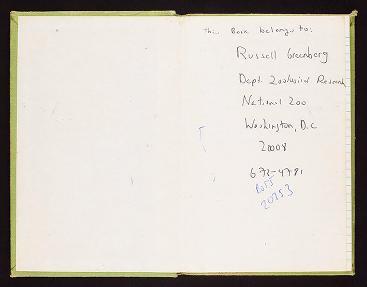 This Book belongs to:
Russell Greenberg
Dept. Zoological Research
National Zoo
Washington, D.C
20008
673-4781
20253